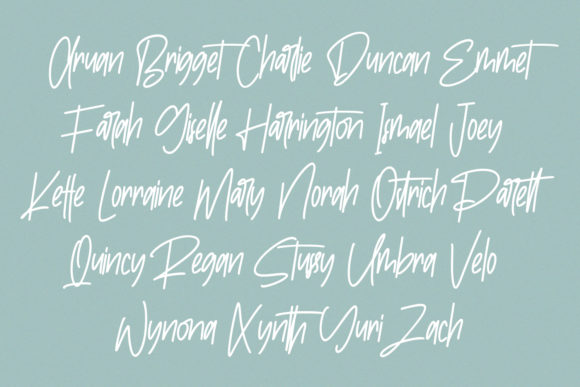 Alruan Brigget Charlie Duncan Emmet
Farah Giselle Harrington Ismael Joey
Kette Lorraine Mary Norah Ostrich Parett
Quincy Regan Stussy Umbra Velo
Wynona Xynth Yuri Zach